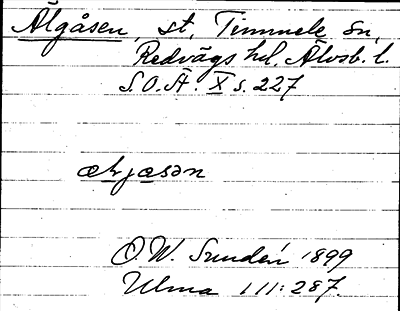 Älgåsen, st, Timmele sn,
Redvägs hd. Älvsb. l.
S.O.Ä. X s. 227
O.W. Sundén 1899
Ulma 111:287.